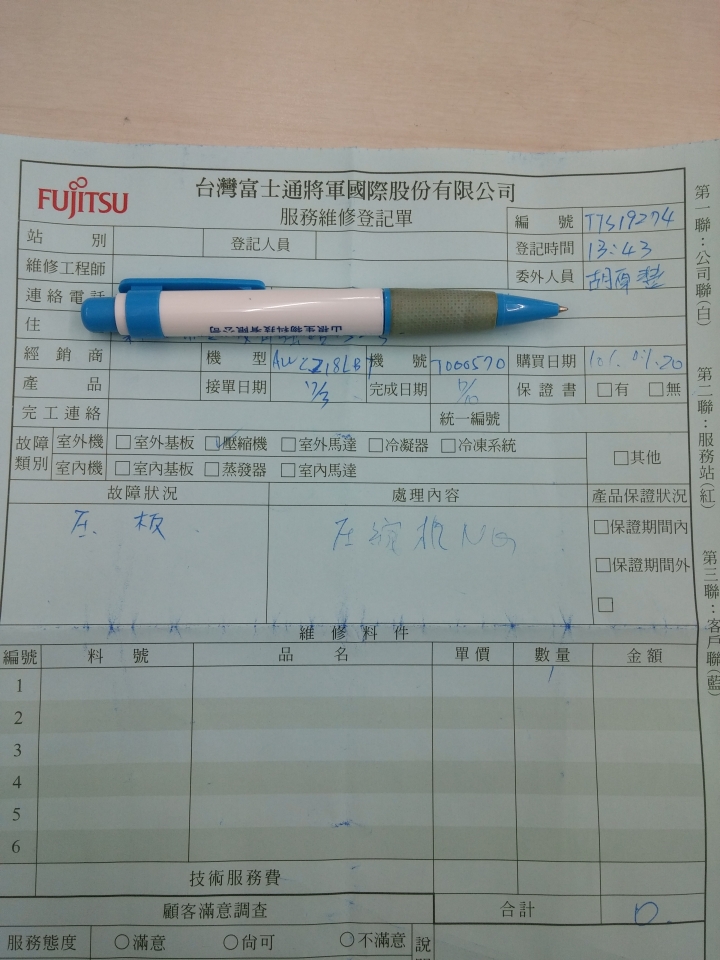 FUJITSU
台灣富士通將軍國際股份有限公司
服務維修登記單
編 號 TTS19274
站 別 登記人員 登記時間 13:43
維修工程師 委外人員
連絡電話
山根生物科技有限公司
住
經銷商 機 型 機 號 7000570 購買日期
產 品 接單日期 12/3 完成日期 保證書 □有 □無
完工連絡 統一編號
故障類別 室外機 □室外基板 □壓縮機 □室外馬達 □冷凝器 □冷凍系統 □其他
室內機 □室內基板 □蒸發器 □室內馬達
故障狀況 處理內容 產品保證狀況
板 压縮机 NG □保證期間內
□保證期間外
□
維修料件
編號 料 號 品 名 單價 數量 金額
1 1
2
3
4
5
6
技術服務費
顧客滿意調查 合計 0.
服務態度 ○滿意 ○尚可 ○不滿意 說
第一聯：公司聯(白)
第二聯：服務站(紅)
第三聯：客戶聯(藍)